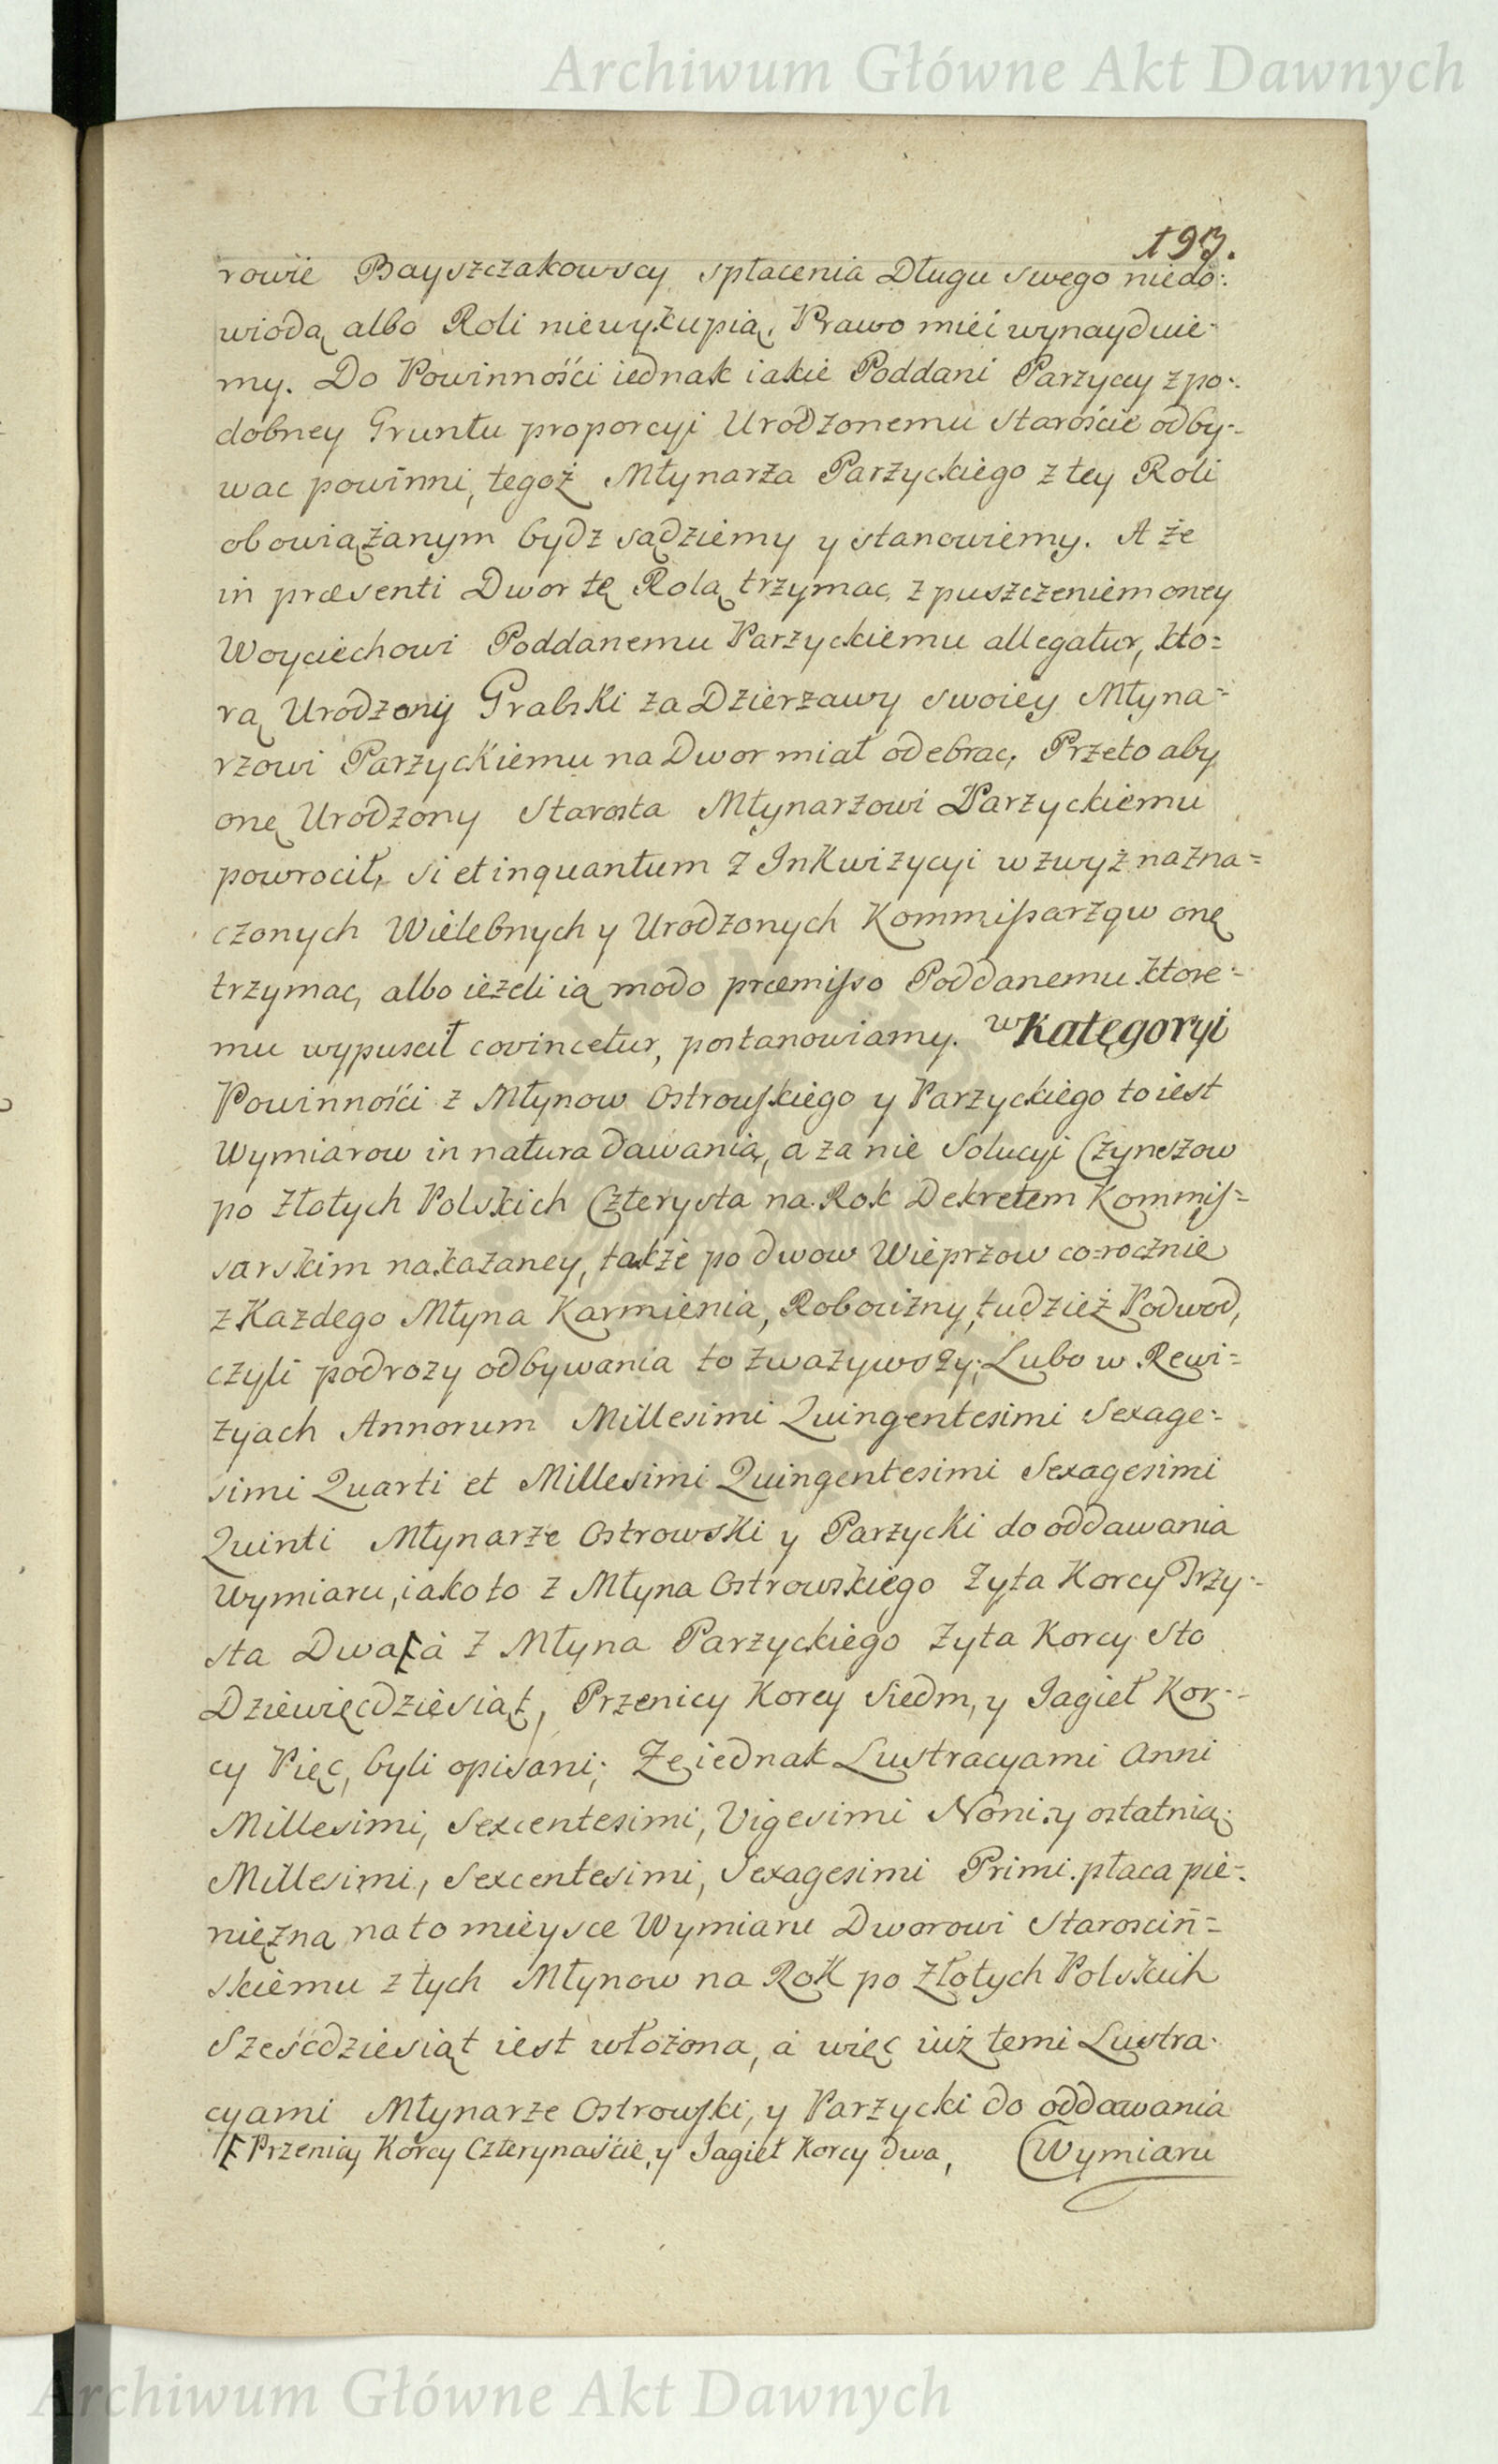 Archiwum Główne Akt Dawnych
193.
rowie Bayszczakowscy spłacenia Długu swego niedo:
wiodą albo Roli niewykupią, Prawo mieć wynayduie-
my. Do Powinności iednak iakie Poddani Parzyccy z po-
dobney Gruntu proporcyi Urodzonemu Staroście odby-
wac powinni, tegoż Młynarza Parzyckiego z tey Roli
obowiązanym bydz sądziemy y stanowiemy. A że
in præsenti Dwor tę Rolą trzymac, z puszczeniem oney
Woyciechowi Poddanemu Parzyckiemu allegatur, kto=
rą Urodzony Grabski za Dzierzawy swoiey Młyna=
rzowi Parzyckiemu na Dwor miał odebrac, Przeto aby
onę Urodzony Starosta Młynarzowi Parzyckiemu
powrocił, si et inquantum z Inkwizycyi wzwyż nazna=
czonych Wielebnych y Urodzonych Kommissarzow onę
trzymac, albo ieżeli ią modo præmisso Poddanemu ktore-
mu wypuscił covincetur, postanowiamy. w Katęgoryi
Powinności z Młynow Ostrowskiego y Parzyckiego to iest
Wymiarow in natura dawania, a za nie Solucyi Czynszow
po Złotych Polskich Czterysta na Rok Dekretem Kommis=
sarskim nakazaney, także po dwow Wieprzow co=rocznie
z Kazdego Młyna Karmienia, Robocizny, tudzież Podwod,
czyli podrozy odbywania to zwazywszy; Lubo w Rewi=
zyach Annorum Millesimi Quingentesimi Sexage=
simi Quarti et Millesimi Quingentesimi Sexagesimi
Quinti Młynarze Ostrowski y Parzycki do oddawania
Wymiaru, iako to z Młyna Ostrowskiego Zyta Korcy Trzy-
sta Dwa ⁅ à z Młyna Parzyckiego Zyta Korcy Sto
Dziewięcdziesiąt, Przenicy Korcy Siedm, y Jagieł Kor-
cy Pięc, byli opisani; Ze iednak Lustracyami Anni
Millesimi, Sexcentesimi, Vigesimi Noni y ostatnią
Millesimi, Sexcentesimi, Sexagesimi Primi płaca pie-
niężna na to mieysce Wymiaru Dworowi Starosciń=
skiemu z tych Młynow na Rok po Złotych Polskich
Sześćdziesiąt iest włożona, à więc iuż temi Lustra-
cyami Młynarze Ostrowski, y Parzycki do oddawania
⁅ Przenicy Korcy Czterynaście, y Jagieł Korcy dwa, Wymiaru
Archiwum Główne Akt Dawnych